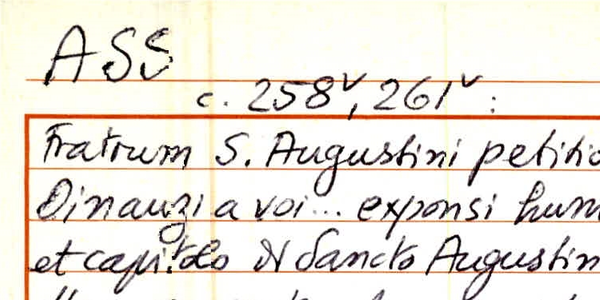 ASS
c. 258v, 261v:
Fratrum S. Augustini petitio
Dinanzi a voi... exponsi hum
et capitolo di Sancto Augustin